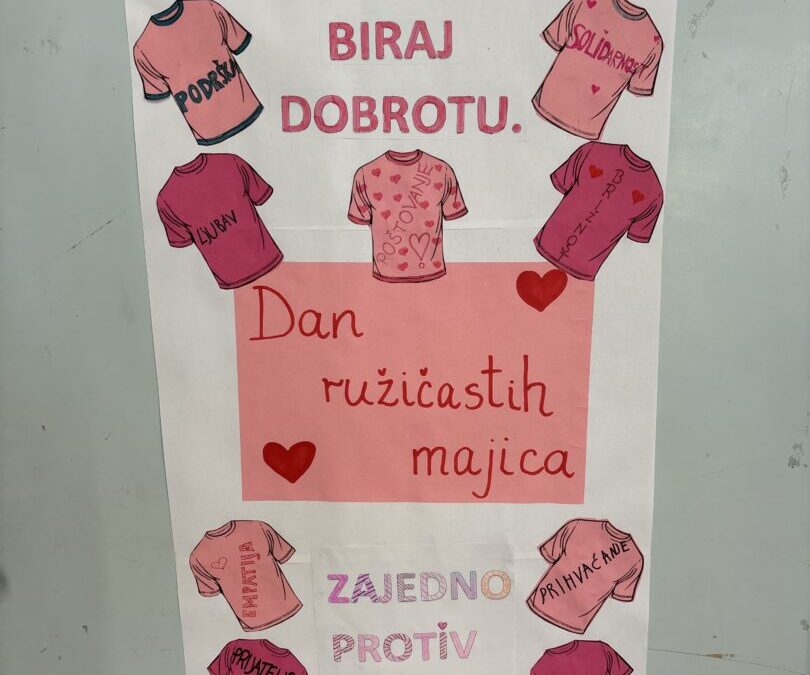 BIRAJ
DOBROTU.
PODRŠKA
SOLIDARNOST
LJUBAV
POŠTOVANJE
BRIŽNOST
Dan
ružičastih
majica
EMPATIJA
ZAJEDNO
PROTIV
PRIHVAĆANJE